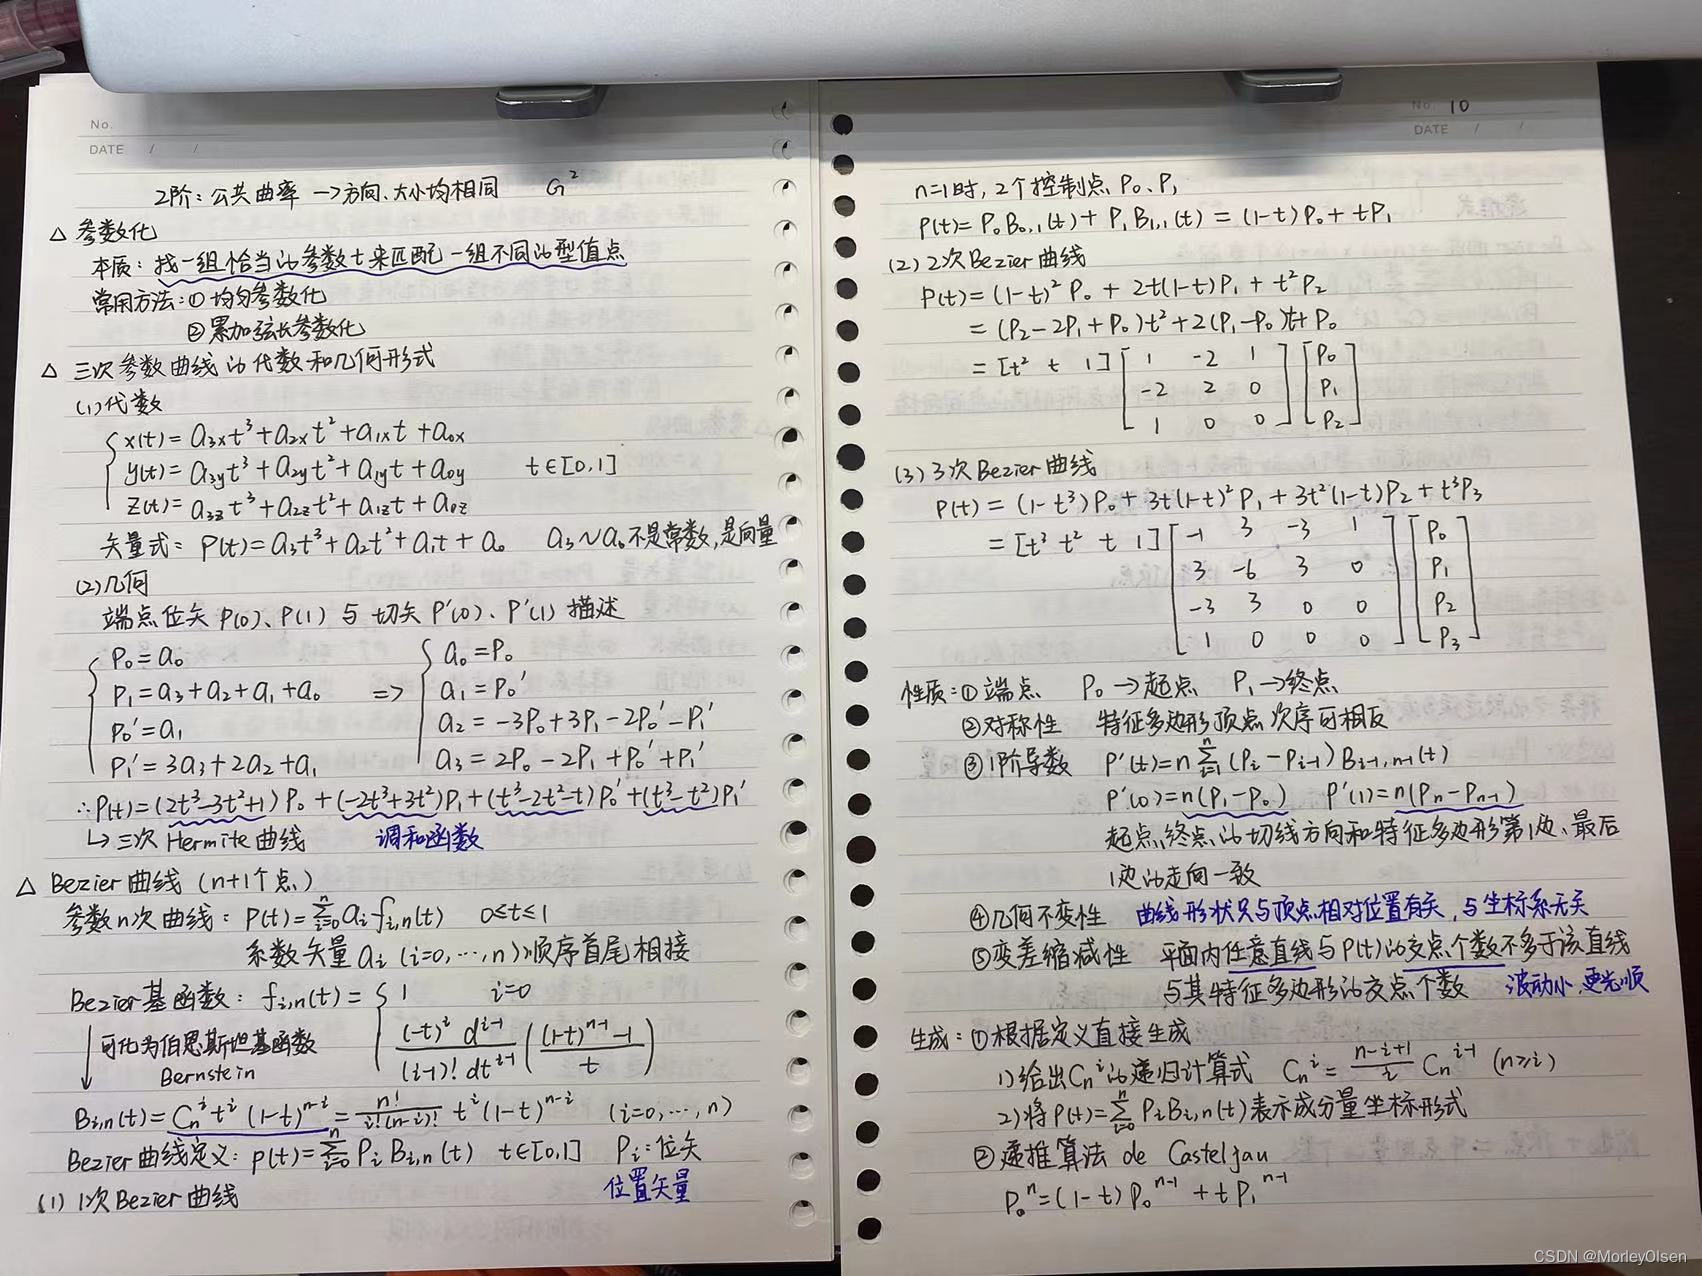 No.
DATE / /
2阶：公共曲率 →方向、大小均相同 G²
△ 参数化
本质：找一组恰当的参数t来匹配一组不同的型值点
常用方法：① 均匀参数化
② 累加弦长参数化
△ 三次参数曲线的代数和几何形式
(1)代数
x(t)= a3xt³+a2xt²+a1xt+a0x
y(t)= a3yt³+a2yt²+a1yt+a0y t∈[0,1]
z(t)= a3zt³+a2zt²+a1zt+a0z
矢量式： P(t)=a3t³+a2t²+a1t+a0 a3~a0不是常数,是向量
(2)几何
端点位矢 P(0)、P(1) 与 切矢 P'(0)、P'(1) 描述
P0=a0 a0=P0
P1=a3+a2+a1+a0 => a1=P0'
P0'=a1 a2=-3P0+3P1-2P0'-P1'
P1'=3a3+2a2+a1 a3=2P0-2P1+P0'+P1'
∴P(t)=(2t³-3t²+1)P0+(-2t³+3t²)P1+(t³-2t²-t)P0'+(t³-t²)P1'
↳三次 Hermite 曲线 调和函数
△ Bezier 曲线 (n+1个点)
参数n次曲线： P(t)=Σ(i=0,n) ai fi,n(t) 0≤t≤1
系数矢量 ai (i=0,…,n)顺序首尾相接
Bezier基函数： fi,n(t)= { 1 i=0
(-t)^i/(i-1)! d^(i-1)/dt^(i-1) (((1-t)^(n-1)-1)/t)
↓ 可化为伯恩斯坦基函数
Bernstein
Bi,n(t)=Cn^i t^i (1-t)^(n-i)= n!/(i!(n-i)!) t^i(1-t)^(n-i) (i=0,…,n)
Bezier曲线定义： P(t)=Σ(i=0,n) Pi Bi,n(t) t∈[0,1] Pi：位矢
位置矢量
(1) 1次Bezier曲线
No. 10
DATE / /
n=1时, 2个控制点 P0、P1
P(t)= P0B0,1(t)+ P1B1,1(t) = (1-t)P0+tP1
(2) 2次Bezier曲线
P(t)=(1-t)²P0 + 2t(1-t)P1 + t²P2
= (P2-2P1+P0)t²+2(P1-P0)t+P0
= [t² t 1] [1 -2 1] [P0]
[-2 2 0] [P1]
[1 0 0] [P2]
(3) 3次Bezier曲线
P(t) = (1-t³)P0+3t(1-t)²P1+3t²(1-t)P2+t³P3
= [t³ t² t 1] [-1 3 -3 1] [P0]
[3 -6 3 0] [P1]
[-3 3 0 0] [P2]
[1 0 0 0] [P3]
性质：① 端点 P0→起点 P1→终点
② 对称性 特征多边形顶点次序可相反
③ 1阶导数 P'(t)=nΣ(i=1,n)(Pi-Pi-1)Bi-1,n-1(t)
P'(0)=n(P1-P0) P'(1)=n(Pn-Pn-1)
起点、终点的切线方向和特征多边形第1边、最后
1边的走向一致
④几何不变性 曲线形状只与顶点相对位置有关,与坐标系无关
⑤变差缩减性 平面内任意直线与P(t)的交点个数不多于该直线
与其特征多边形的交点个数 波动小,更光顺
生成：①根据定义直接生成
1)给出Cn^i的递归计算式 Cn^i= (n-i+1)/i Cn^(i-1) (n≥i)
2)将P(t)=Σ(i=0,n) PiBi,n(t)表示成分量坐标形式
② 递推算法 de Casteljau
P0^n=(1-t)P0^(n-1)+tP1^(n-1)
CSDN @MorleyOlsen